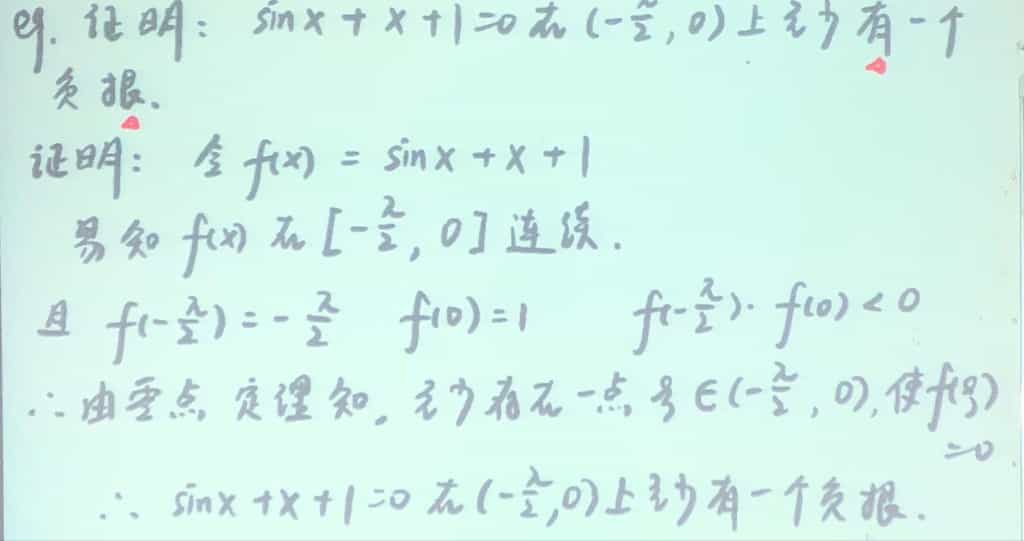 eg. 证明: sinx + x + 1 = 0 在 (-π/2, 0) 上至少有一个
负根.
证明: 令 f(x) = sinx + x + 1
易知 f(x) 在 [-π/2, 0] 连续.
且 f(-π/2) = -π/2 f(0) = 1 f(-π/2)· f(0) < 0
∴ 由零点定理知, 至少存在一点 ξ ∈ (-π/2, 0), 使 f(ξ)
=0
∴ sinx + x + 1 = 0 在 (-π/2, 0) 上至少有一个负根.